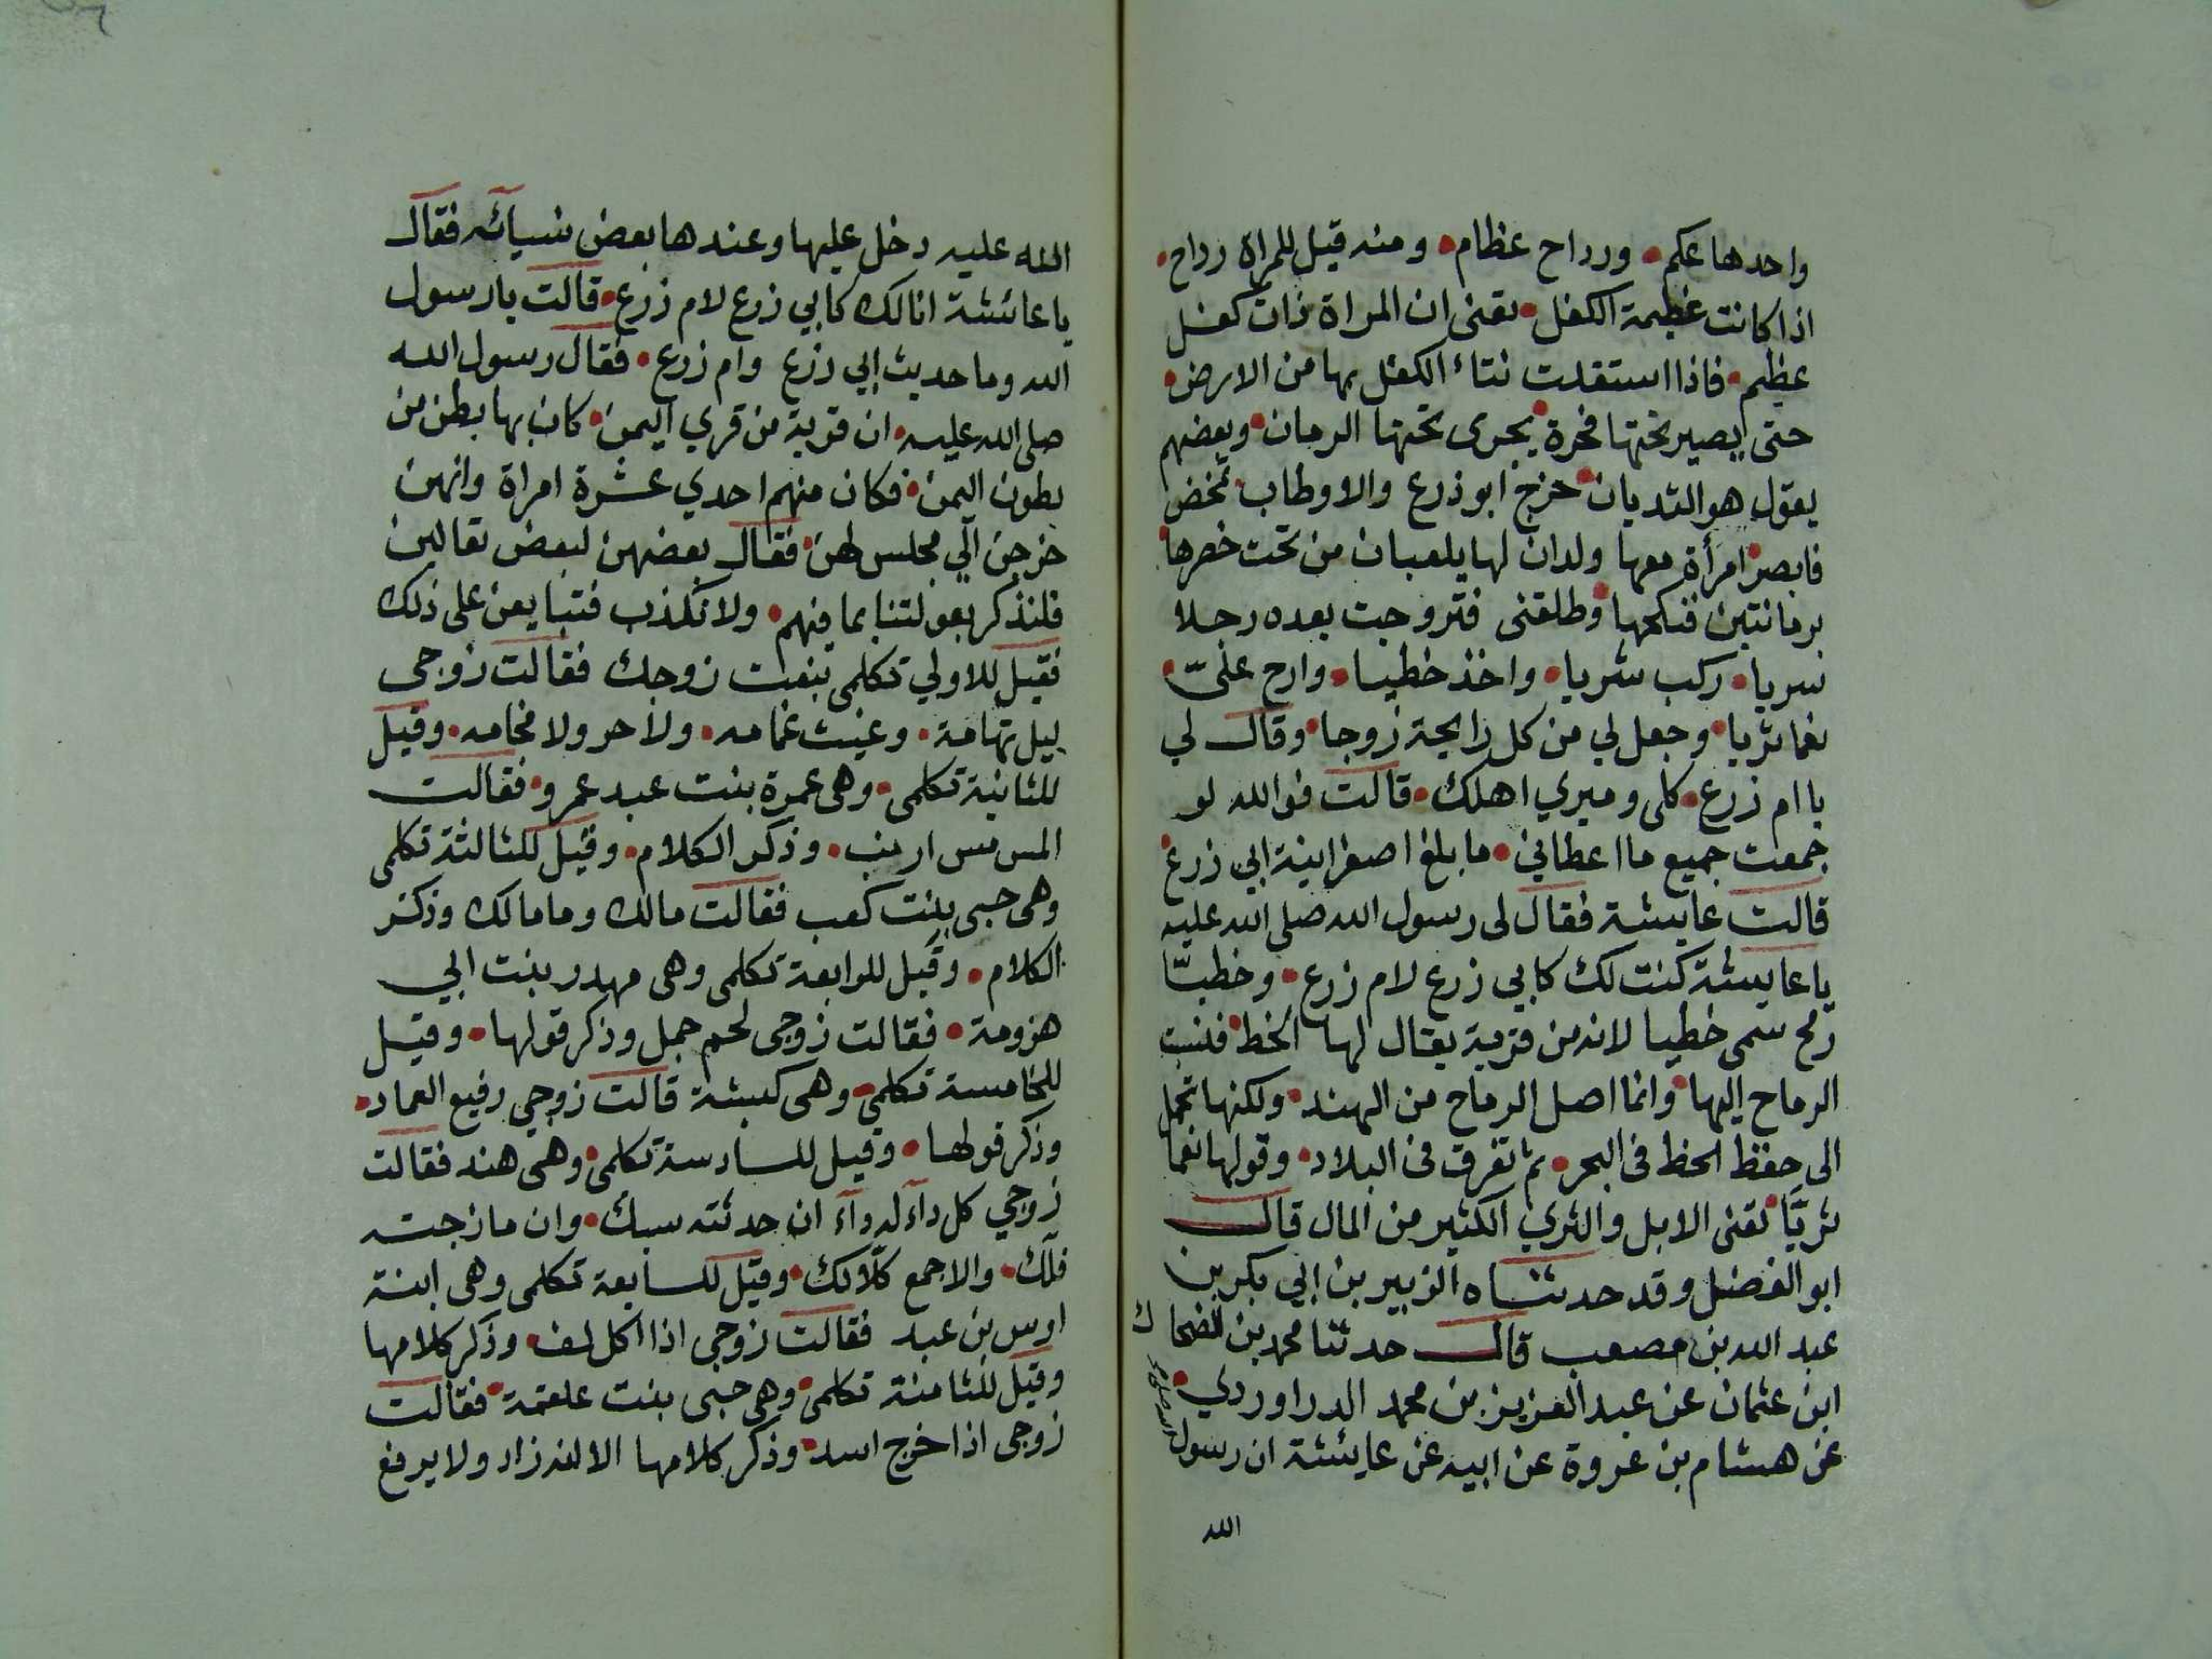 واحدها عكم • ورداح عظام • ومنه قيل للمراة رداح •
اذا كانت عظيمة الكفل • تعنى ان المراة ذات كفل
عظيم • فاذا استقلت نتاء الكفل بها من الارض •
حتى يصير تحتها فجرة • يجرى تحتها الرمان • وبعضهم
يقول هو الثديان • خرج ابو زرع والاوطاب تمخض
فابصر امرأة معها ولدان لها يلعبان من تحت خصرها
برمانتين فنكحها • وطلقنى فتزوجت بعده رجلا
سريا • ركب شريا • واخذ خطيا • وارح علىّ •
نعما ثريا • وجعل لي من كل رايحة زوجا • وقال لي
يا ام زرع • كلى وميري اهلك • قالت فوالله لو
جمعت جميع ما اعطاني • ما بلغ اصغر انية ابي زرع •
قالت عايشة فقال لى رسول الله صلى الله عليه
يا عايشة كنت لك كابي زرع لام زرع • وخطيّا
رمح سمى خطيا لانه من قرية يقال لها الخط • فنسب
الرماح اليها • وانما اصل الرماح من الهند • ولكنها تحمل
الى حفظ الخط فى البحر • ثم تفرق فى البلاد • وقولها نعما
ثريّا • تعنى الابل والثري الكثير من المال قال
ابو الفضل وقد حدثناه الزبير بن ابي بكر بن
عبد الله بن مصعب قال حدثنا محمد بن الضحاك
ابن عثمان عن عبد العزيز بن محمد الدراوردي •
عن هشام بن عروة عن ابيه عن عايشة ان رسول
الله
الله عليه دخل عليها وعندها بعض نسيآئه فقال
يا عائشة انا لك كابي زرع لام زرع • قالت يا رسول
الله وما حديث ابي زرع وام زرع • فقال رسول الله
صلى الله عليه • ان قرية من قري اليمن • كان بها بطن من
بطون اليمن • فكان منهم احدي عشرة امراة وانهن
خرجن الي مجلس لهن • فقال بعضهن لبعض تعالين
فلنذكر بعولتنا بما فيهم • ولا نكذب فتبايعن على ذلك
فقيل للاولي تكلمى بنعت زوجك فقالت زوجى
ليل تهامة • وغيث غمامه • ولا حر ولا مخامه • وقيل
للثانية تكلمى • وهى عمرة بنت عبد عمرو • فقالت
المس مس ارنب • وذكر الكلام • وقيل للثالثة تكلمى
وهى حبى بنت كعب فقالت مالك وما مالك وذكر
الكلام • وقيل للرابعة تكلمى وهى مهدد بنت ابي
هزومة • فقالت زوجى لحم جمل وذكر قولها • وقيل
للخامسة تكلمي • وهى كبشة قالت زوجي رفيع العماد •
وذكر قولها • وقيل للسادسة تكلمى • وهى هند فقالت
زوجي كل دآء له دوآء ان حدثته سبك • وان مازحته
فلّك • والا جمع كلّا لك • وقيل للسابعة تكلمى وهى ابنة
اوس بن عبد فقالت زوجى اذا اكل لف • وذكر كلامها
وقيل للثامنة تكلمى • وهى حبى بنت علقمة • فقالت
زوجى اذا خرج اسد • وذكر كلامها الا انه زاد ولا يرفع